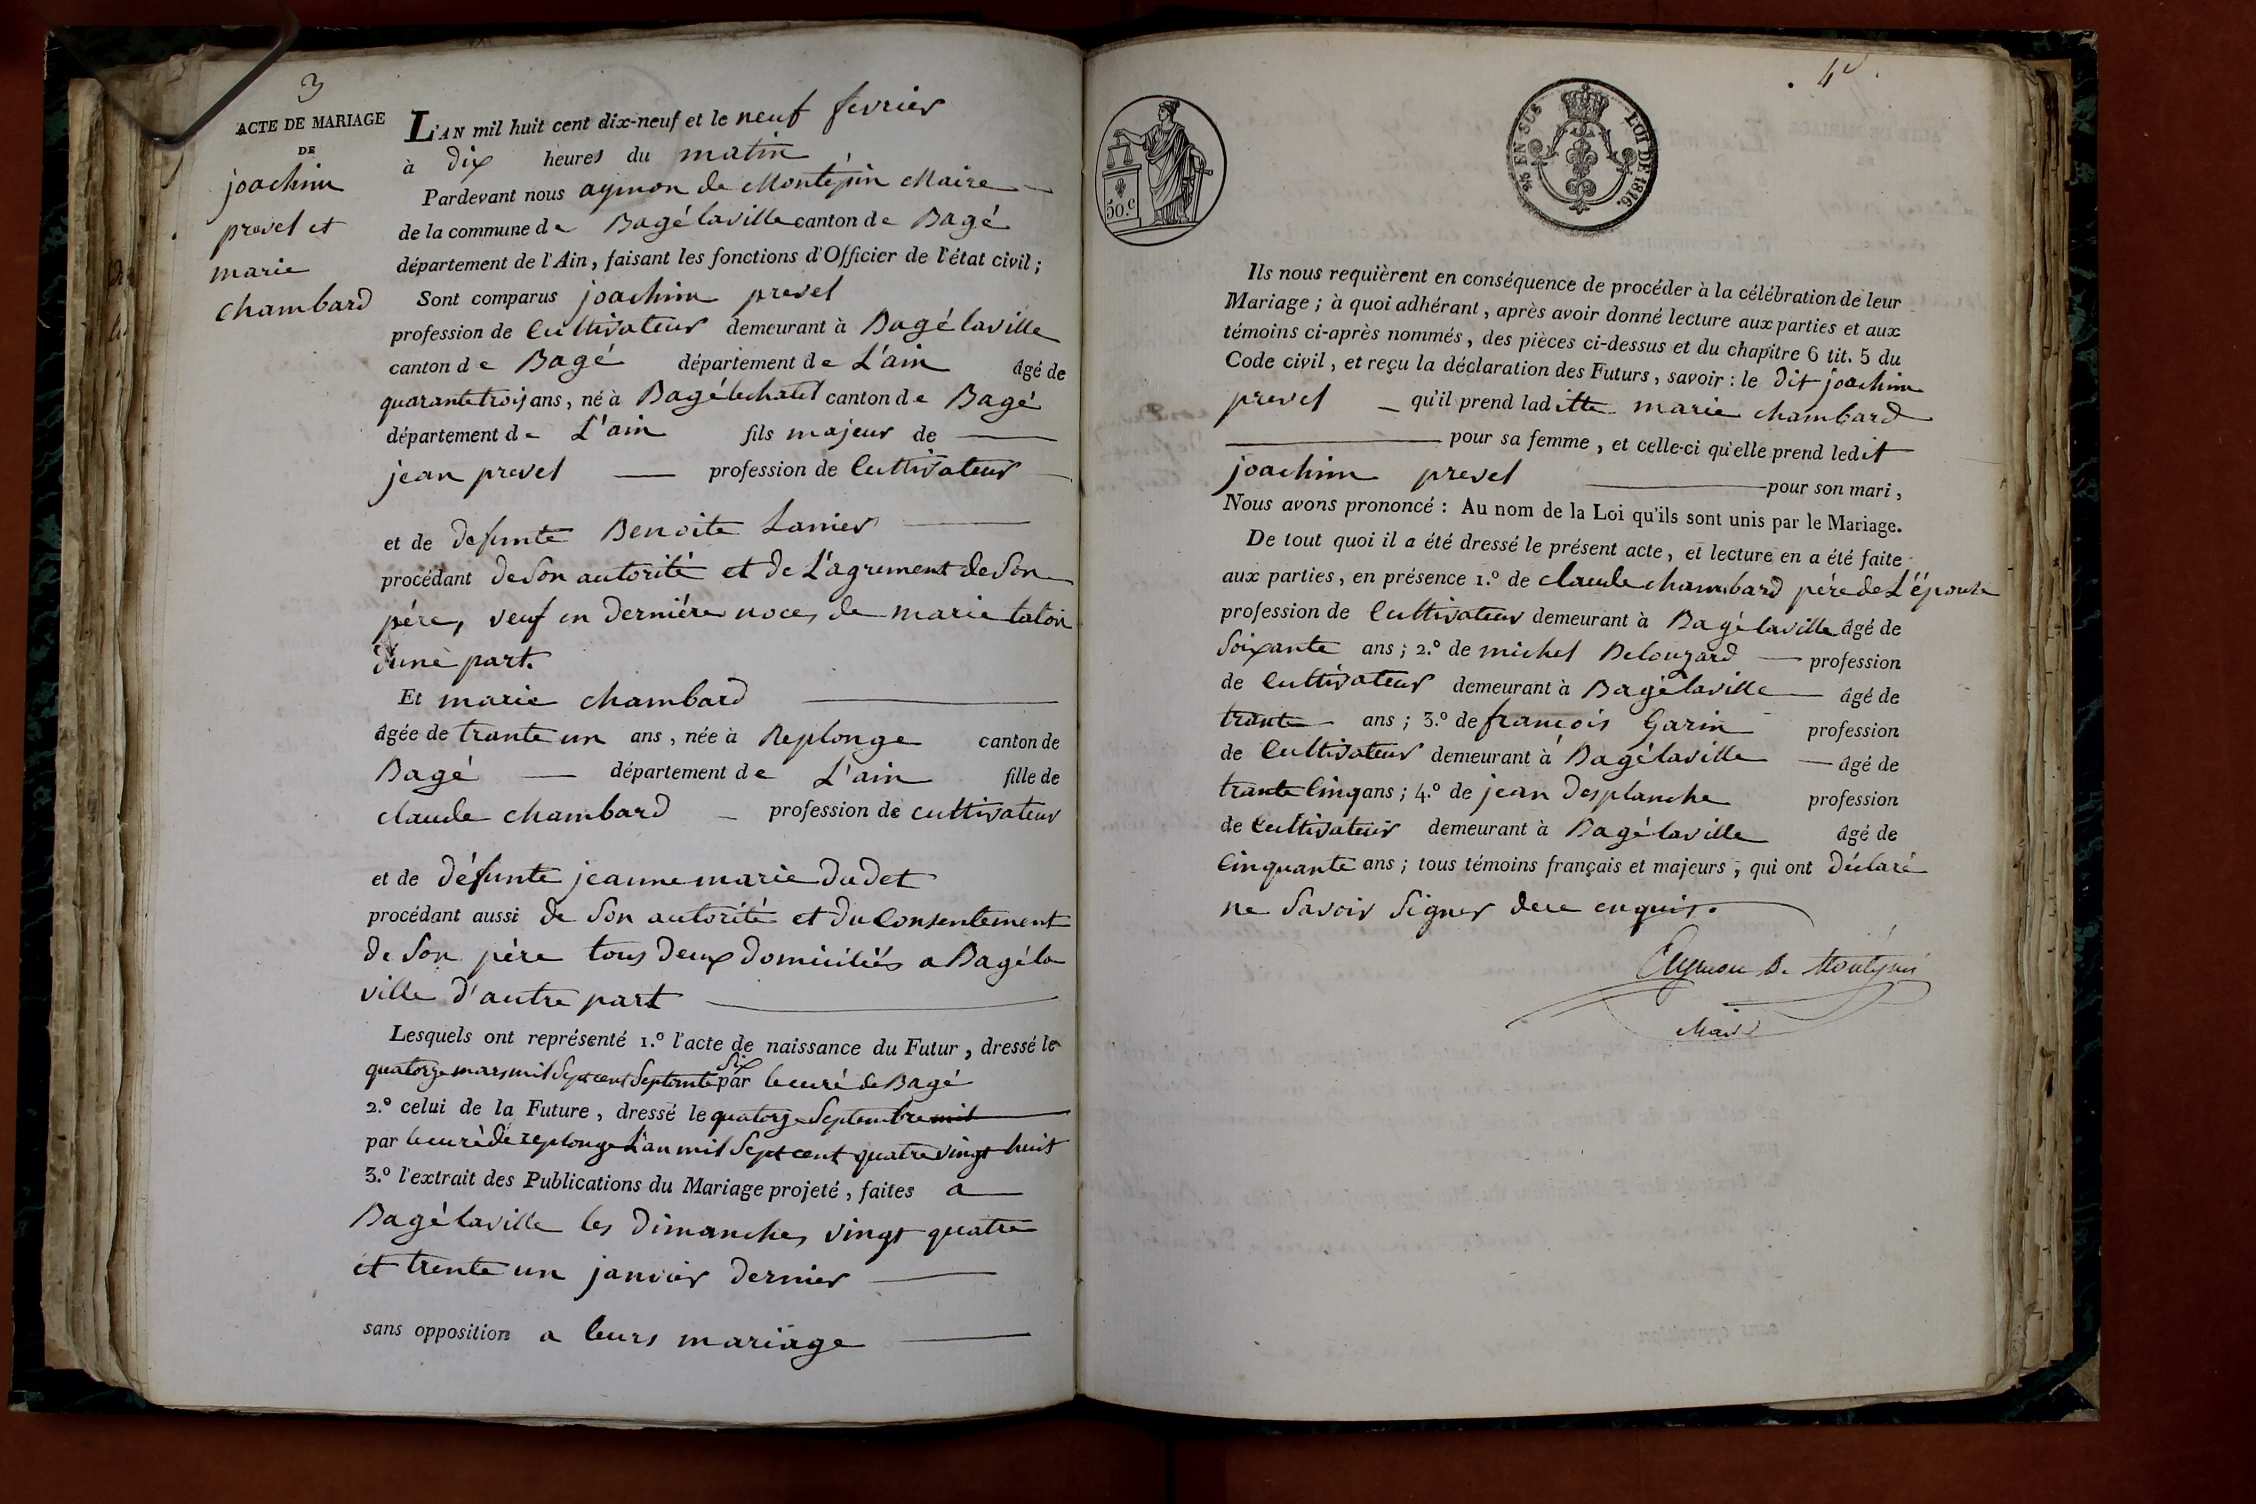 3
ACTE DE MARIAGE
DE
joachim
prevel et
marie
chambard
L'AN mil huit cent dix-neuf et le neuf fevrier
à dix heures du matin
Pardevant nous aymon de Montépin Maire
de la commune de Bagé laville canton de Bagé
département de l'Ain, faisant les fonctions d'Officier de l'état civil;
Sont comparus joachim prevel
profession de Cultivateur demeurant à Bagé laville
canton de Bagé département de L'ain âgé de
quarante trois ans, né à Bagé lechatel canton de Bagé
département de L'ain fils majeur de
jean prevel profession de Cultivateur
et de defunte Benoite Lanier
procédant de Son autorité et de L'agrement de Son
pére, veuf en derniére noces de marie talon
d'une part.
Et marie chambard
âgée de trante un ans, née à Replonge canton de
Bagé département de L'ain fille de
claude chambard profession de cultivateur
et de défunte jeanne marie dudet
procédant aussi de Son autorité et du Consentement
de Son pére tous deux domiciliés a Bagé la
ville d'autre part
Lesquels ont représenté 1.º l'acte de naissance du Futur, dressé le
quatorze mars mil Sept cent Septente six par le curé de Bagé
2.º celui de la Future, dressé le quatorze Septembre mil
par le curé de replonge L'an mil Sept cent quatre vingt huit
3.º l'extrait des Publications du Mariage projeté, faites a
Bagé laville les dimanches vingt quatre
et trente un janvier dernier
sans opposition a leurs mariage
4
50.c
25 EN SUS LOI DE 1816.
Ils nous requièrent en conséquence de procéder à la célébration de leur
Mariage; à quoi adhérant, après avoir donné lecture aux parties et aux
témoins ci-après nommés, des pièces ci-dessus et du chapitre 6 tit. 5 du
Code civil, et reçu la déclaration des Futurs, savoir: le dit joachim
prevel qu'il prend laditte marie chambard
pour sa femme, et celle-ci qu'elle prend ledit
joachim prevel pour son mari,
Nous avons prononcé: Au nom de la Loi qu'ils sont unis par le Mariage.
De tout quoi il a été dressé le présent acte, et lecture en a été faite
aux parties, en présence 1.º de claude chambard pére de L'épouse
profession de Cultivateur demeurant à Bagé laville âgé de
Soixante ans; 2.º de michel Belouzard profession
de Cultivateur demeurant à Bagé laville âgé de
trante ans; 3.º de francois Garin profession
de Cultivateur demeurant à Bagé laville âgé de
trante Cinq ans; 4.º de jean desplanche profession
de Cultivateur demeurant à Bagé laville âgé de
Cinquante ans; tous témoins français et majeurs, qui ont déclaré
ne Savoir Signer de ce enquis.
Aymon De Montépin
Maire